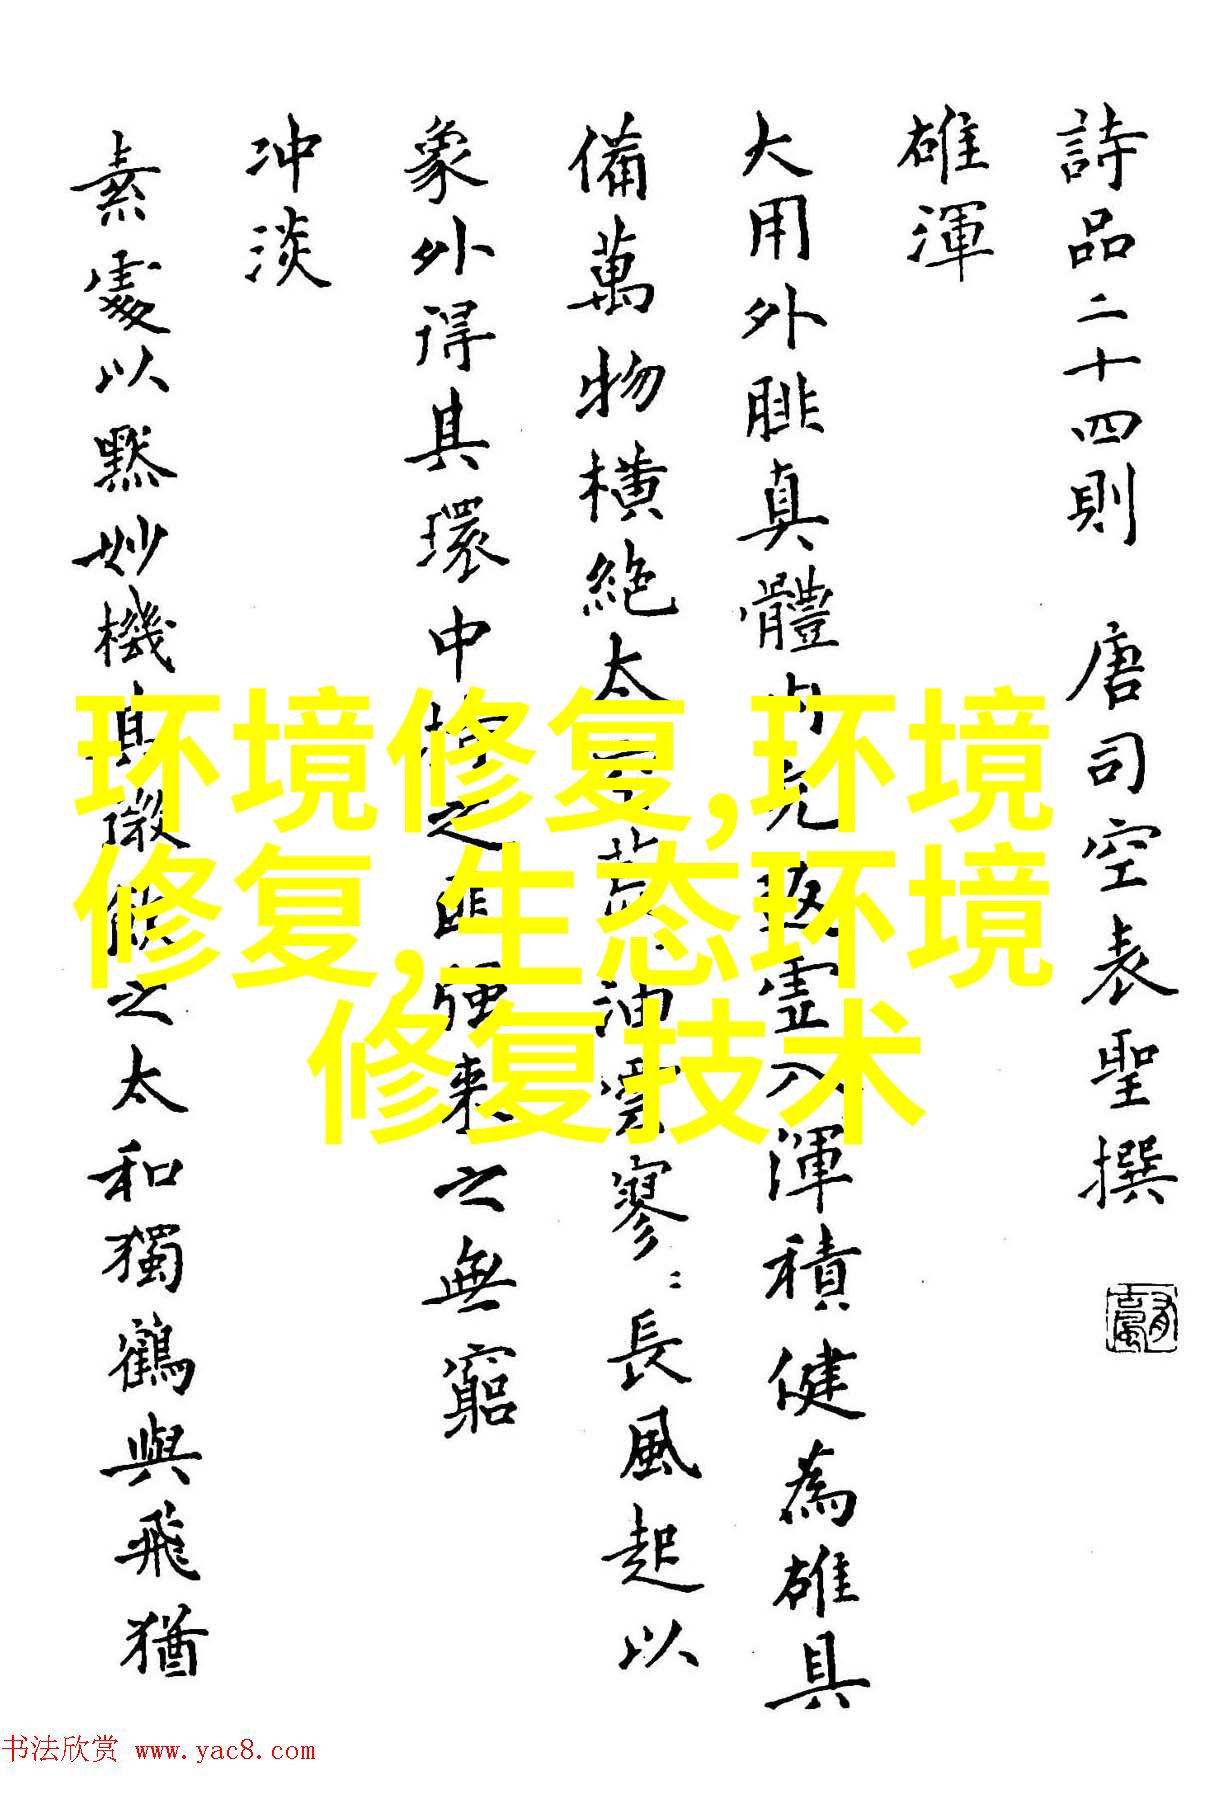 詩品二十四則 唐司空表聖撰
雄渾
大用外腓真體内充返虛入渾積健為雄具
備萬物橫絕太空荒油雲寥:長風起以
象外得其環中持之匪强来之無窮
冲淡
素處以默妙機其微飲之太和獨鶴與飛猶
环境修复,环境
修复,生态环境
修复技术
书法欣赏 www.yac8.com